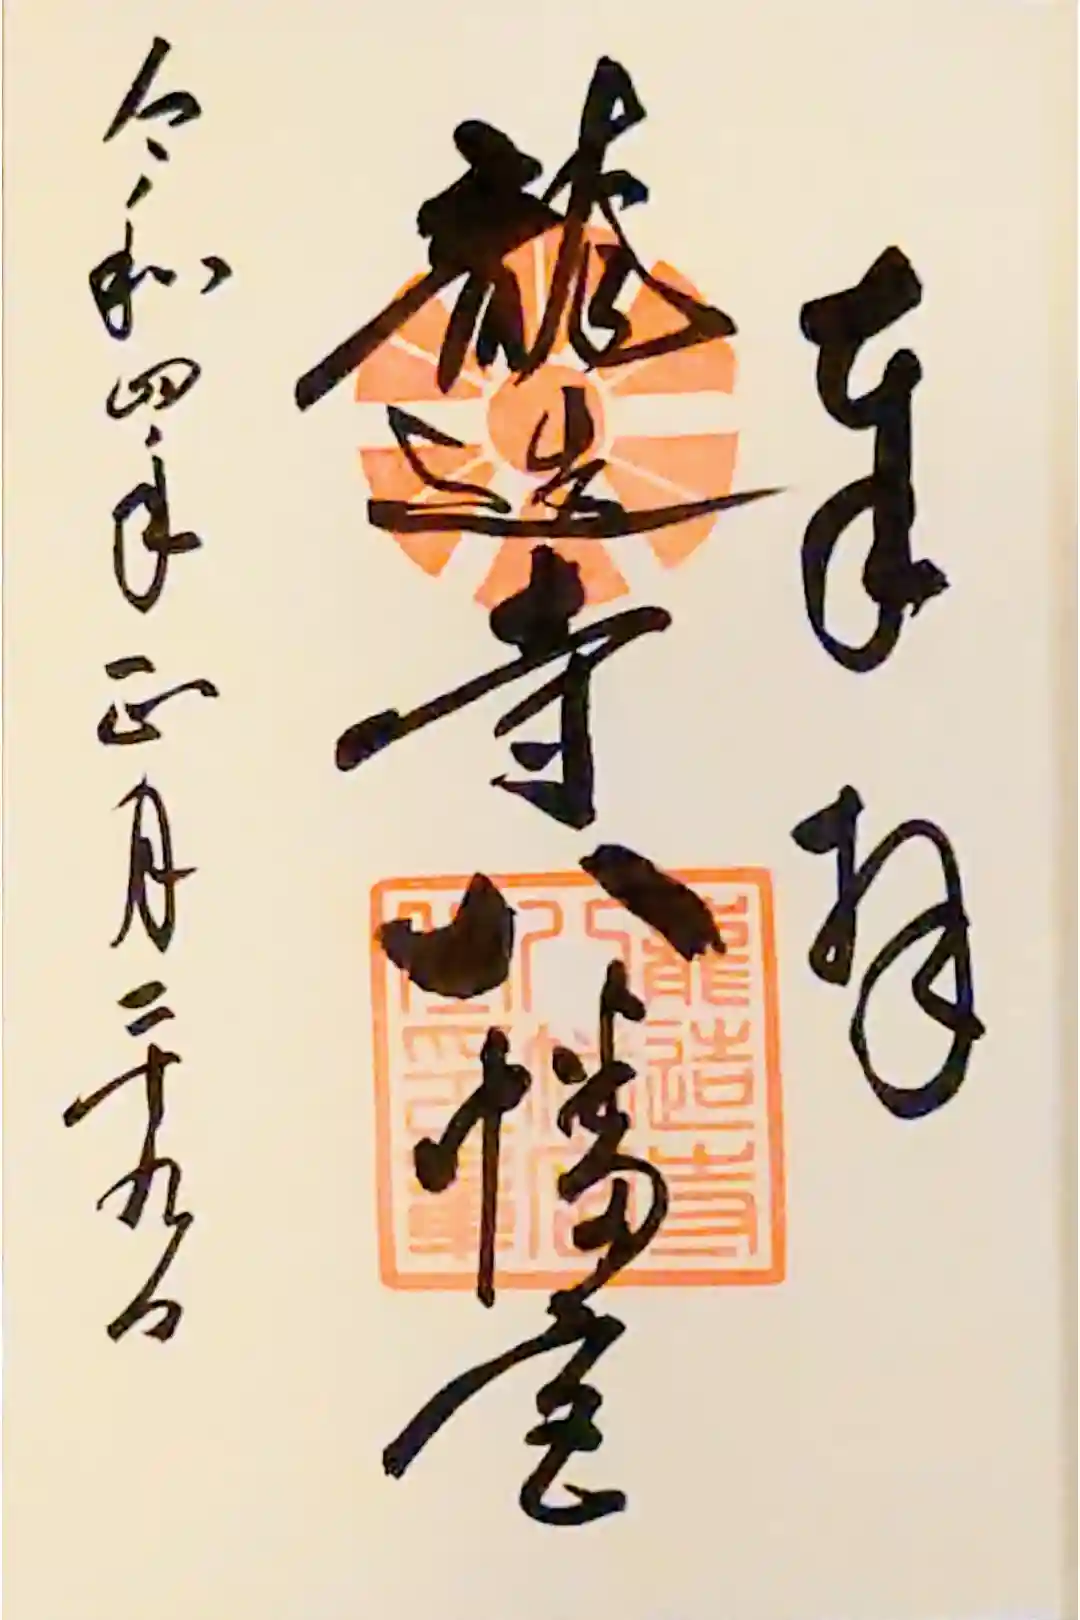 奉拝
龍造寺八幡宮
令和四年正月二十九日
龍造寺
八幡宮